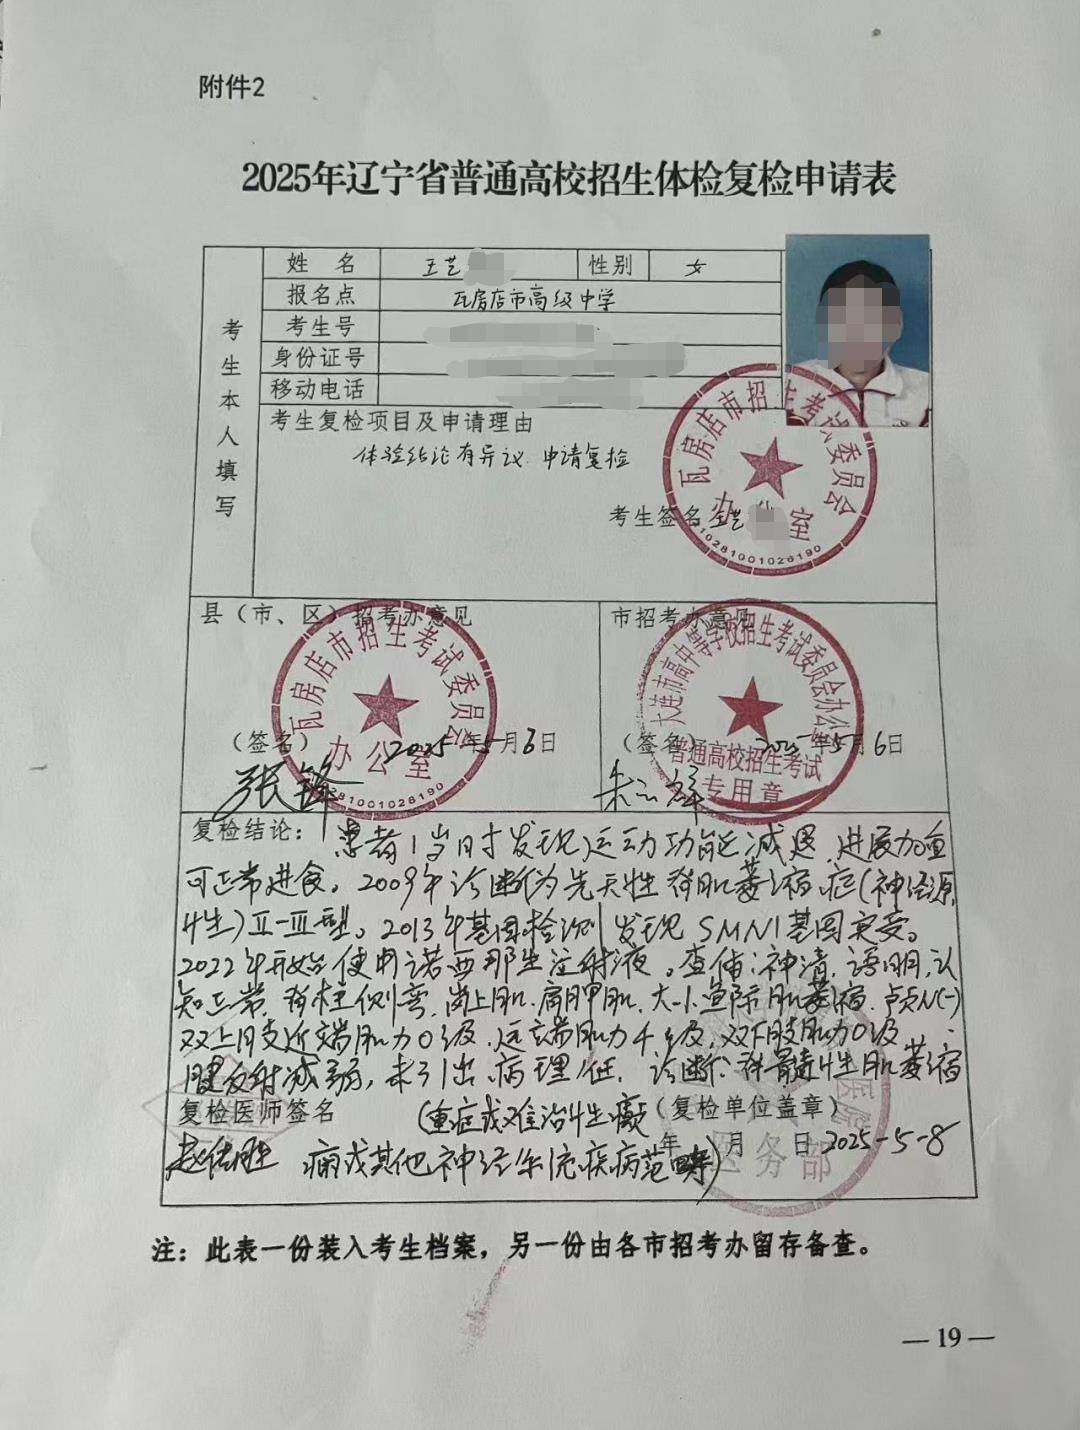 附件2
2025年辽宁省普通高校招生体检复检申请表
考生本人填写
姓 名 王艺 性别 女
报名点 瓦房店市高级中学
考生号
身份证号
移动电话
考生复检项目及申请理由
体验结论有异议 申请复检
考生签名 王艺
瓦房店市招生考试委员会
办公室
210281001026190
县(市、区)招考办意见
市招考办意见
瓦房店市招生考试委员会
办公室
大连市高中等学校招生考试委员会办公室
普通高校招生考试
专用章
(签名) 2025年5月6日
(签名) 2025年5月6日
张锋
朱
复检结论: 患者1岁时发现运动功能减退,进展加重
可正常进食。2009年诊断为先天性脊肌萎缩症(神经源
性)Ⅱ-Ⅲ型。2013年基因检测发现SMN1基因突变。
2022年开始使用诺西那生注射液。查体:神清,语明,认
知正常,脊柱侧弯,岗上肌、肩胛肌、大小鱼际肌萎缩,颅N(-)
双上肢近端肌力0级,远端肌力4级,双下肢肌力0级,
腱反射减弱,未引出病理征. 诊断:脊髓性肌萎缩
复检医师签名 (重症或难治性癫 (复检单位盖章)
年 月 日 2025-5-8
痫或其他神经系统疾病范畴)
医院
医务部
注:此表一份装入考生档案,另一份由各市招考办留存备查。
— 19 —